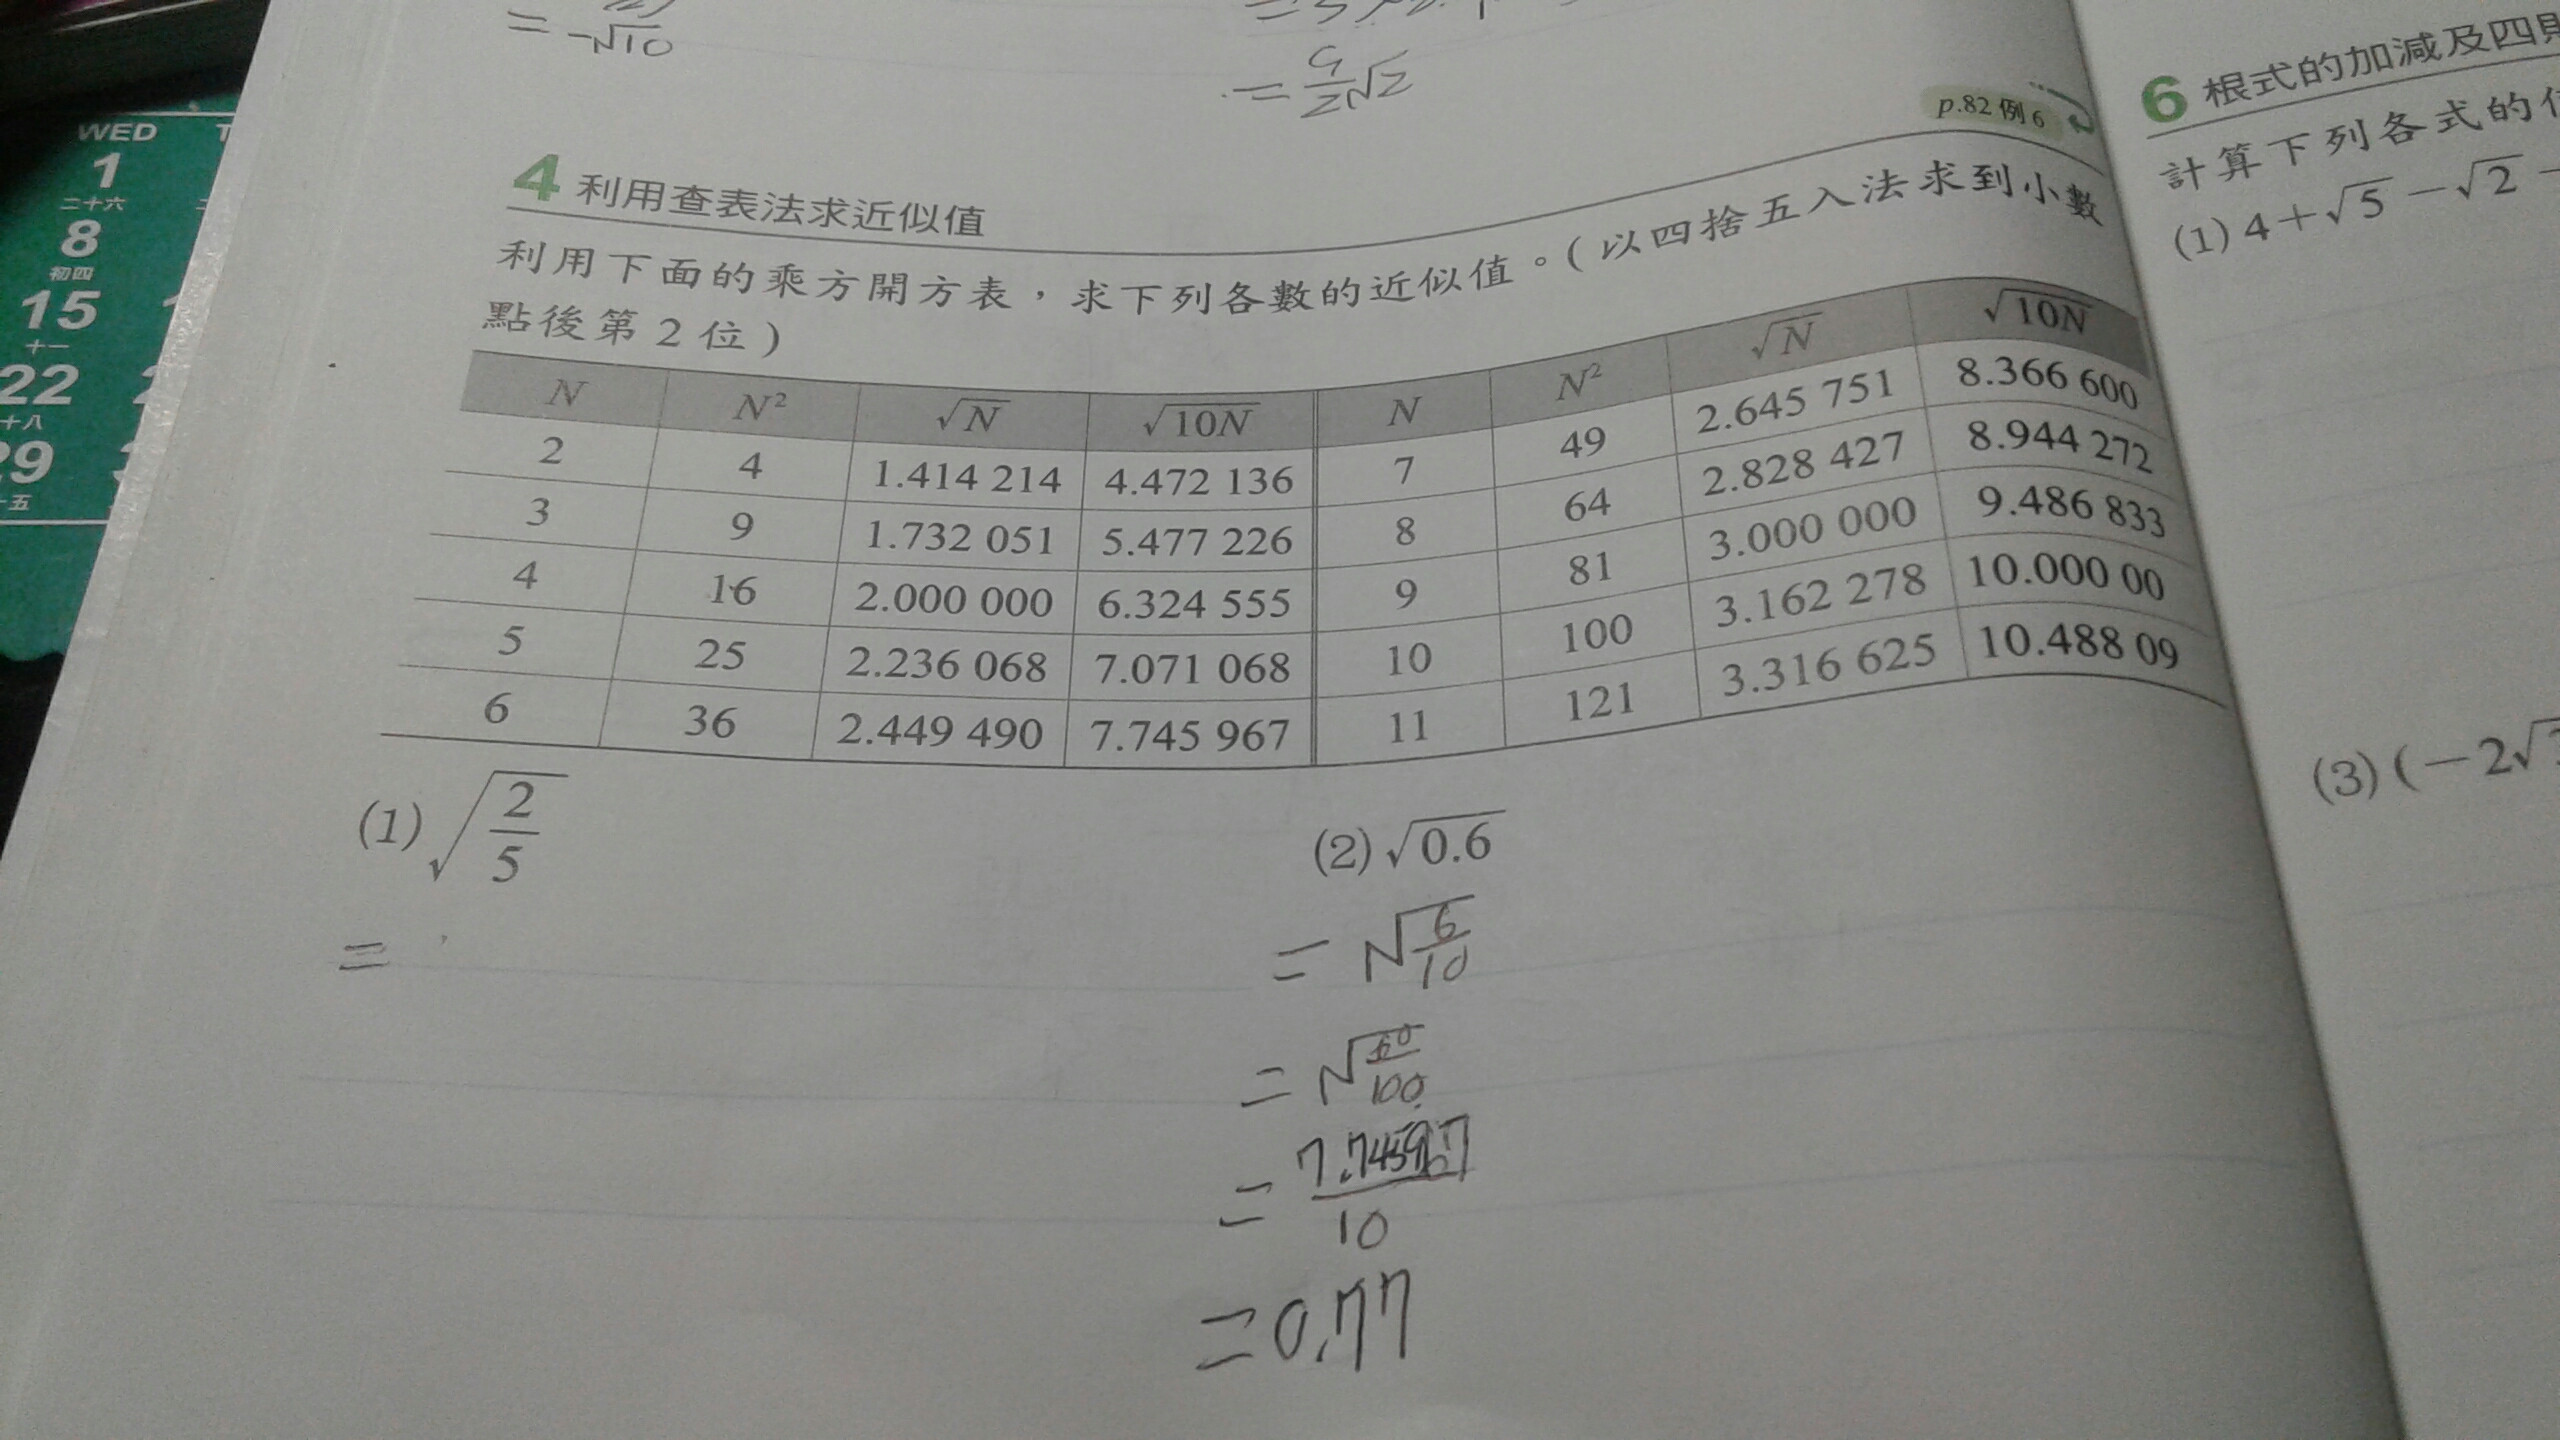 WED
1
二十六
8
初四
15
十一
22
十八
29
十五
= -√10
= 9/2 √2
p.82 例6
4 利用查表法求近似值
利用下面的乘方開方表，求下列各數的近似值。(以四捨五入法求到小數
點後第2位)
N N² √N √10N N N² √N √10N
2 4 1.414 214 4.472 136 7 49 2.645 751 8.366 600
3 9 1.732 051 5.477 226 8 64 2.828 427 8.944 272
4 16 2.000 000 6.324 555 9 81 3.000 000 9.486 833
5 25 2.236 068 7.071 068 10 100 3.162 278 10.000 00
6 36 2.449 490 7.745 967 11 121 3.316 625 10.488 09
(1) √2/5
=
(2) √0.6
= √6/10
= √60/100
= 7.745967/10
= 0.77
6 根式的加減及四則
計算下列各式的
(1) 4+√5−√2−
(3) (−2√